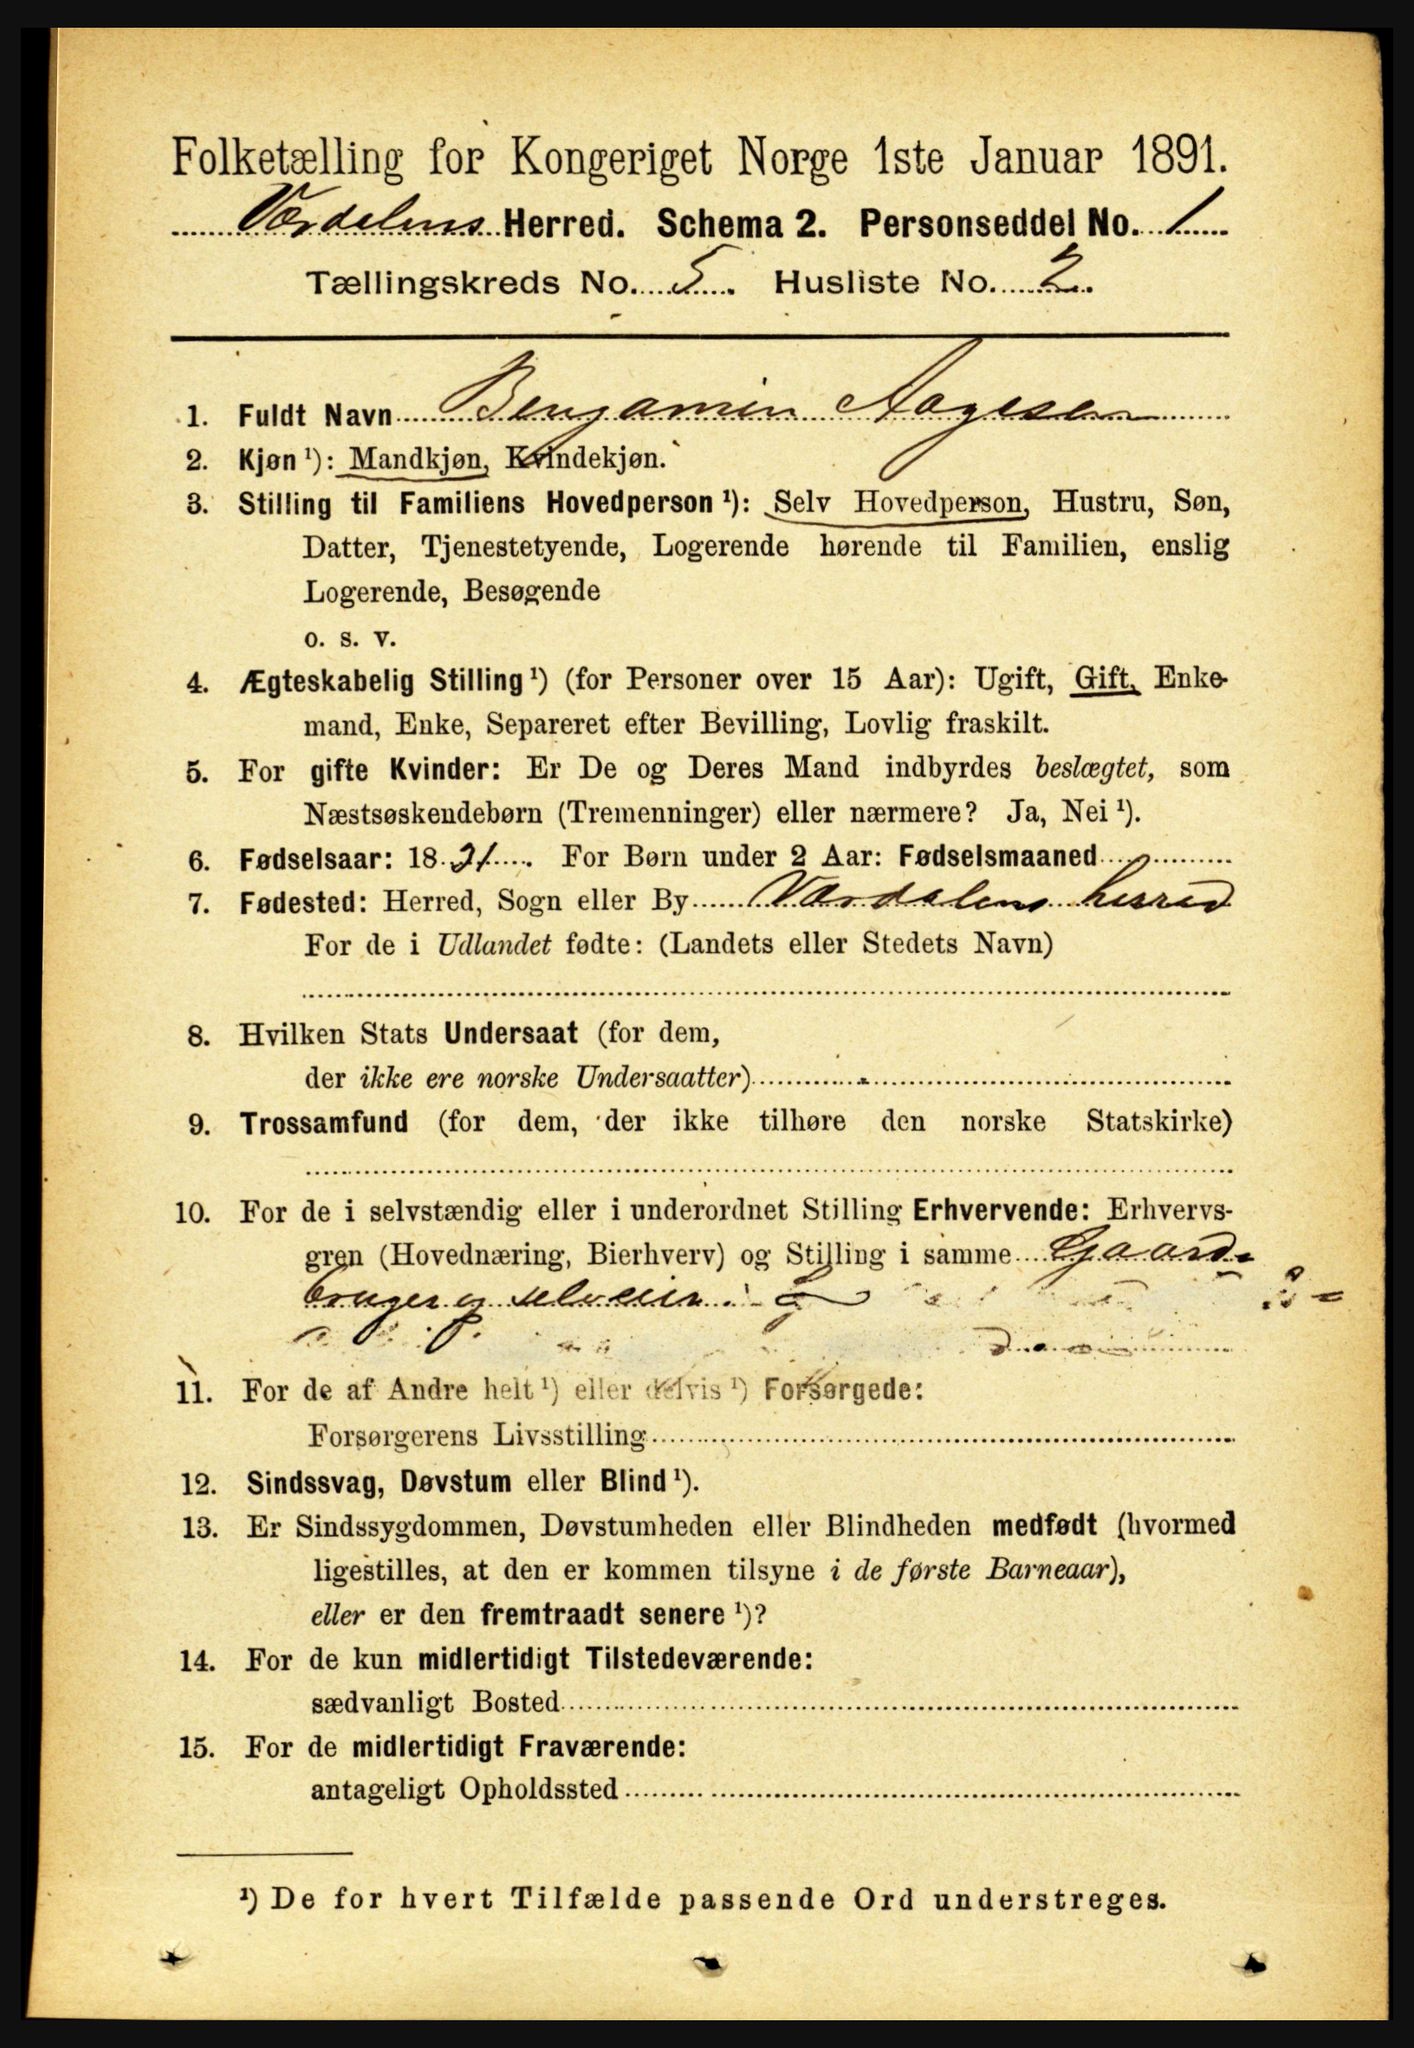 Folketælling for Kongeriget Norge 1ste Januar 1891.
Værdalens Herred. Schema 2. Personseddel No. 1
Tællingskreds No. 5. Husliste No. 2.
1. Fuldt Navn Benjamin Aagesen
2. Kjøn ¹): Mandkjøn, Kvindekjøn.
3. Stilling til Familiens Hovedperson ¹): Selv Hovedperson, Hustru, Søn,
Datter, Tjenestetyende, Logerende hørende til Familien, enslig
Logerende, Besøgende
o. s. v.
4. Ægteskabelig Stilling ¹) (for Personer over 15 Aar): Ugift, Gift, Enke-
mand, Enke, Separeret efter Bevilling, Lovlig fraskilt.
5. For gifte Kvinder: Er De og Deres Mand indbyrdes beslægtet, som
Næstsøskendebørn (Tremenninger) eller nærmere? Ja, Nei ¹).
6. Fødselsaar: 1831. For Børn under 2 Aar: Fødselsmaaned
7. Fødested: Herred, Sogn eller By Værdalens herred
For de i Udlandet fødte: (Landets eller Stedets Navn)
8. Hvilken Stats Undersaat (for dem,
der ikke ere norske Undersaatter)
9. Trossamfund (for dem, der ikke tilhøre den norske Statskirke)
10. For de i selvstændig eller i underordnet Stilling Erhvervende: Erhvervs-
gren (Hovednæring, Bierhverv) og Stilling i samme Gaard-
bruger og selveier
11. For de af Andre helt ¹) eller delvis ¹) Forsørgede:
Forsørgerens Livsstilling
12. Sindssvag, Døvstum eller Blind ¹).
13. Er Sindssygdommen, Døvstumheden eller Blindheden medfødt (hvormed
ligestilles, at den er kommen tilsyne i de første Barneaar),
eller er den fremtraadt senere ¹)?
14. For de kun midlertidigt Tilstedeværende:
sædvanligt Bosted
15. For de midlertidigt Fraværende:
antageligt Opholdssted
¹) De for hvert Tilfælde passende Ord understreges.